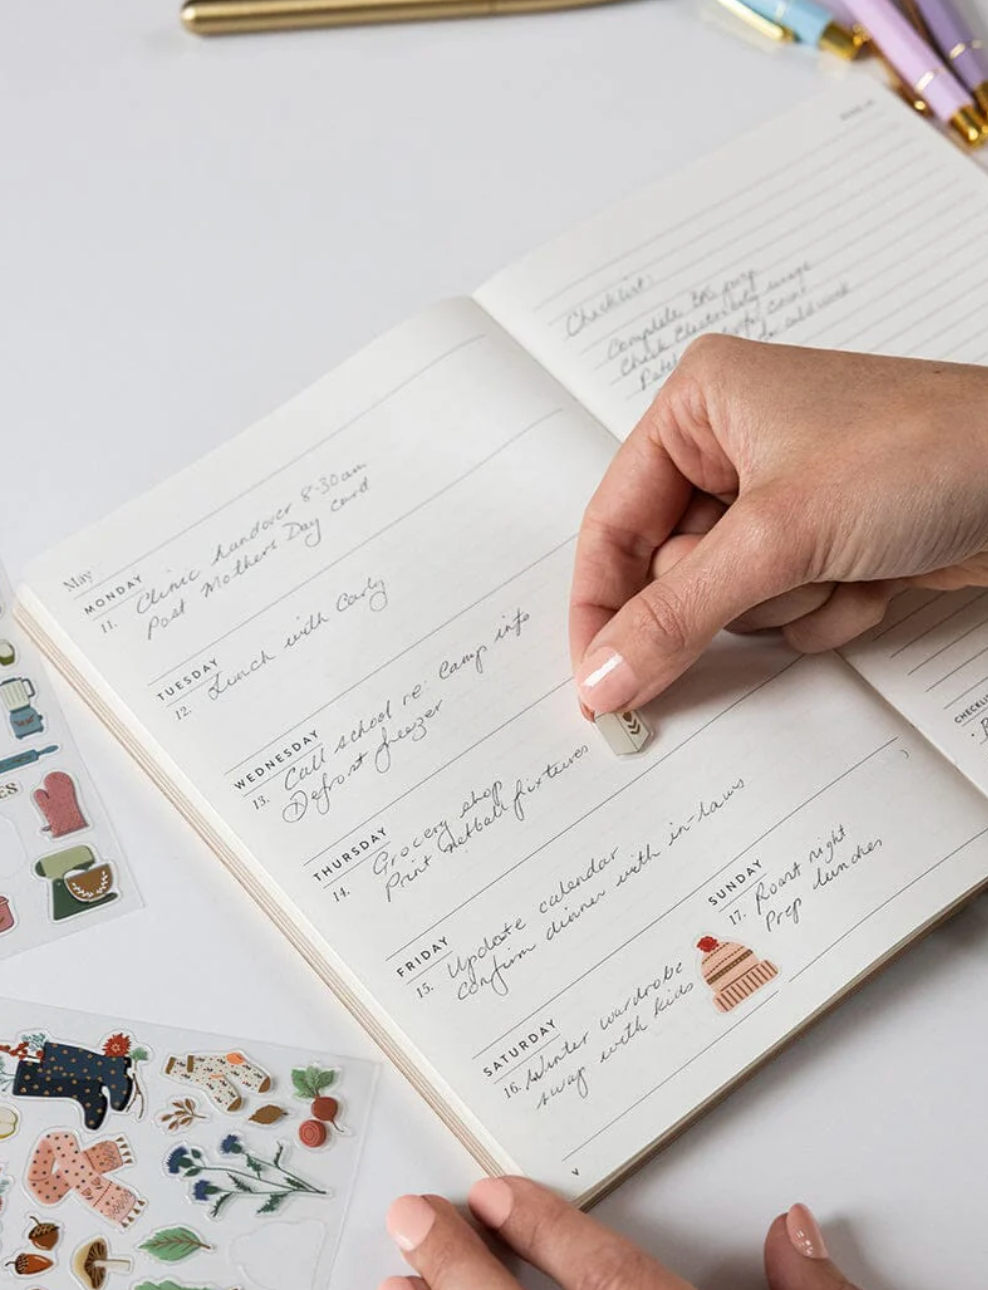 May
MONDAY
11.
Clinic handover 8·30am
Post Mothers Day card
TUESDAY
12.
Lunch with Carly
WEDNESDAY
13.
Call school re: Camp info
Defrost freezer
THURSDAY
14.
Grocery shop
Print netball fixtures
FRIDAY
15.
Update calendar
Confirm dinner with in-laws
SATURDAY
16.
Winter wardrobe
swap with kids
SUNDAY
17.
Roast night
Prep lunches
Checklist:
Complete
Check Electricity usage